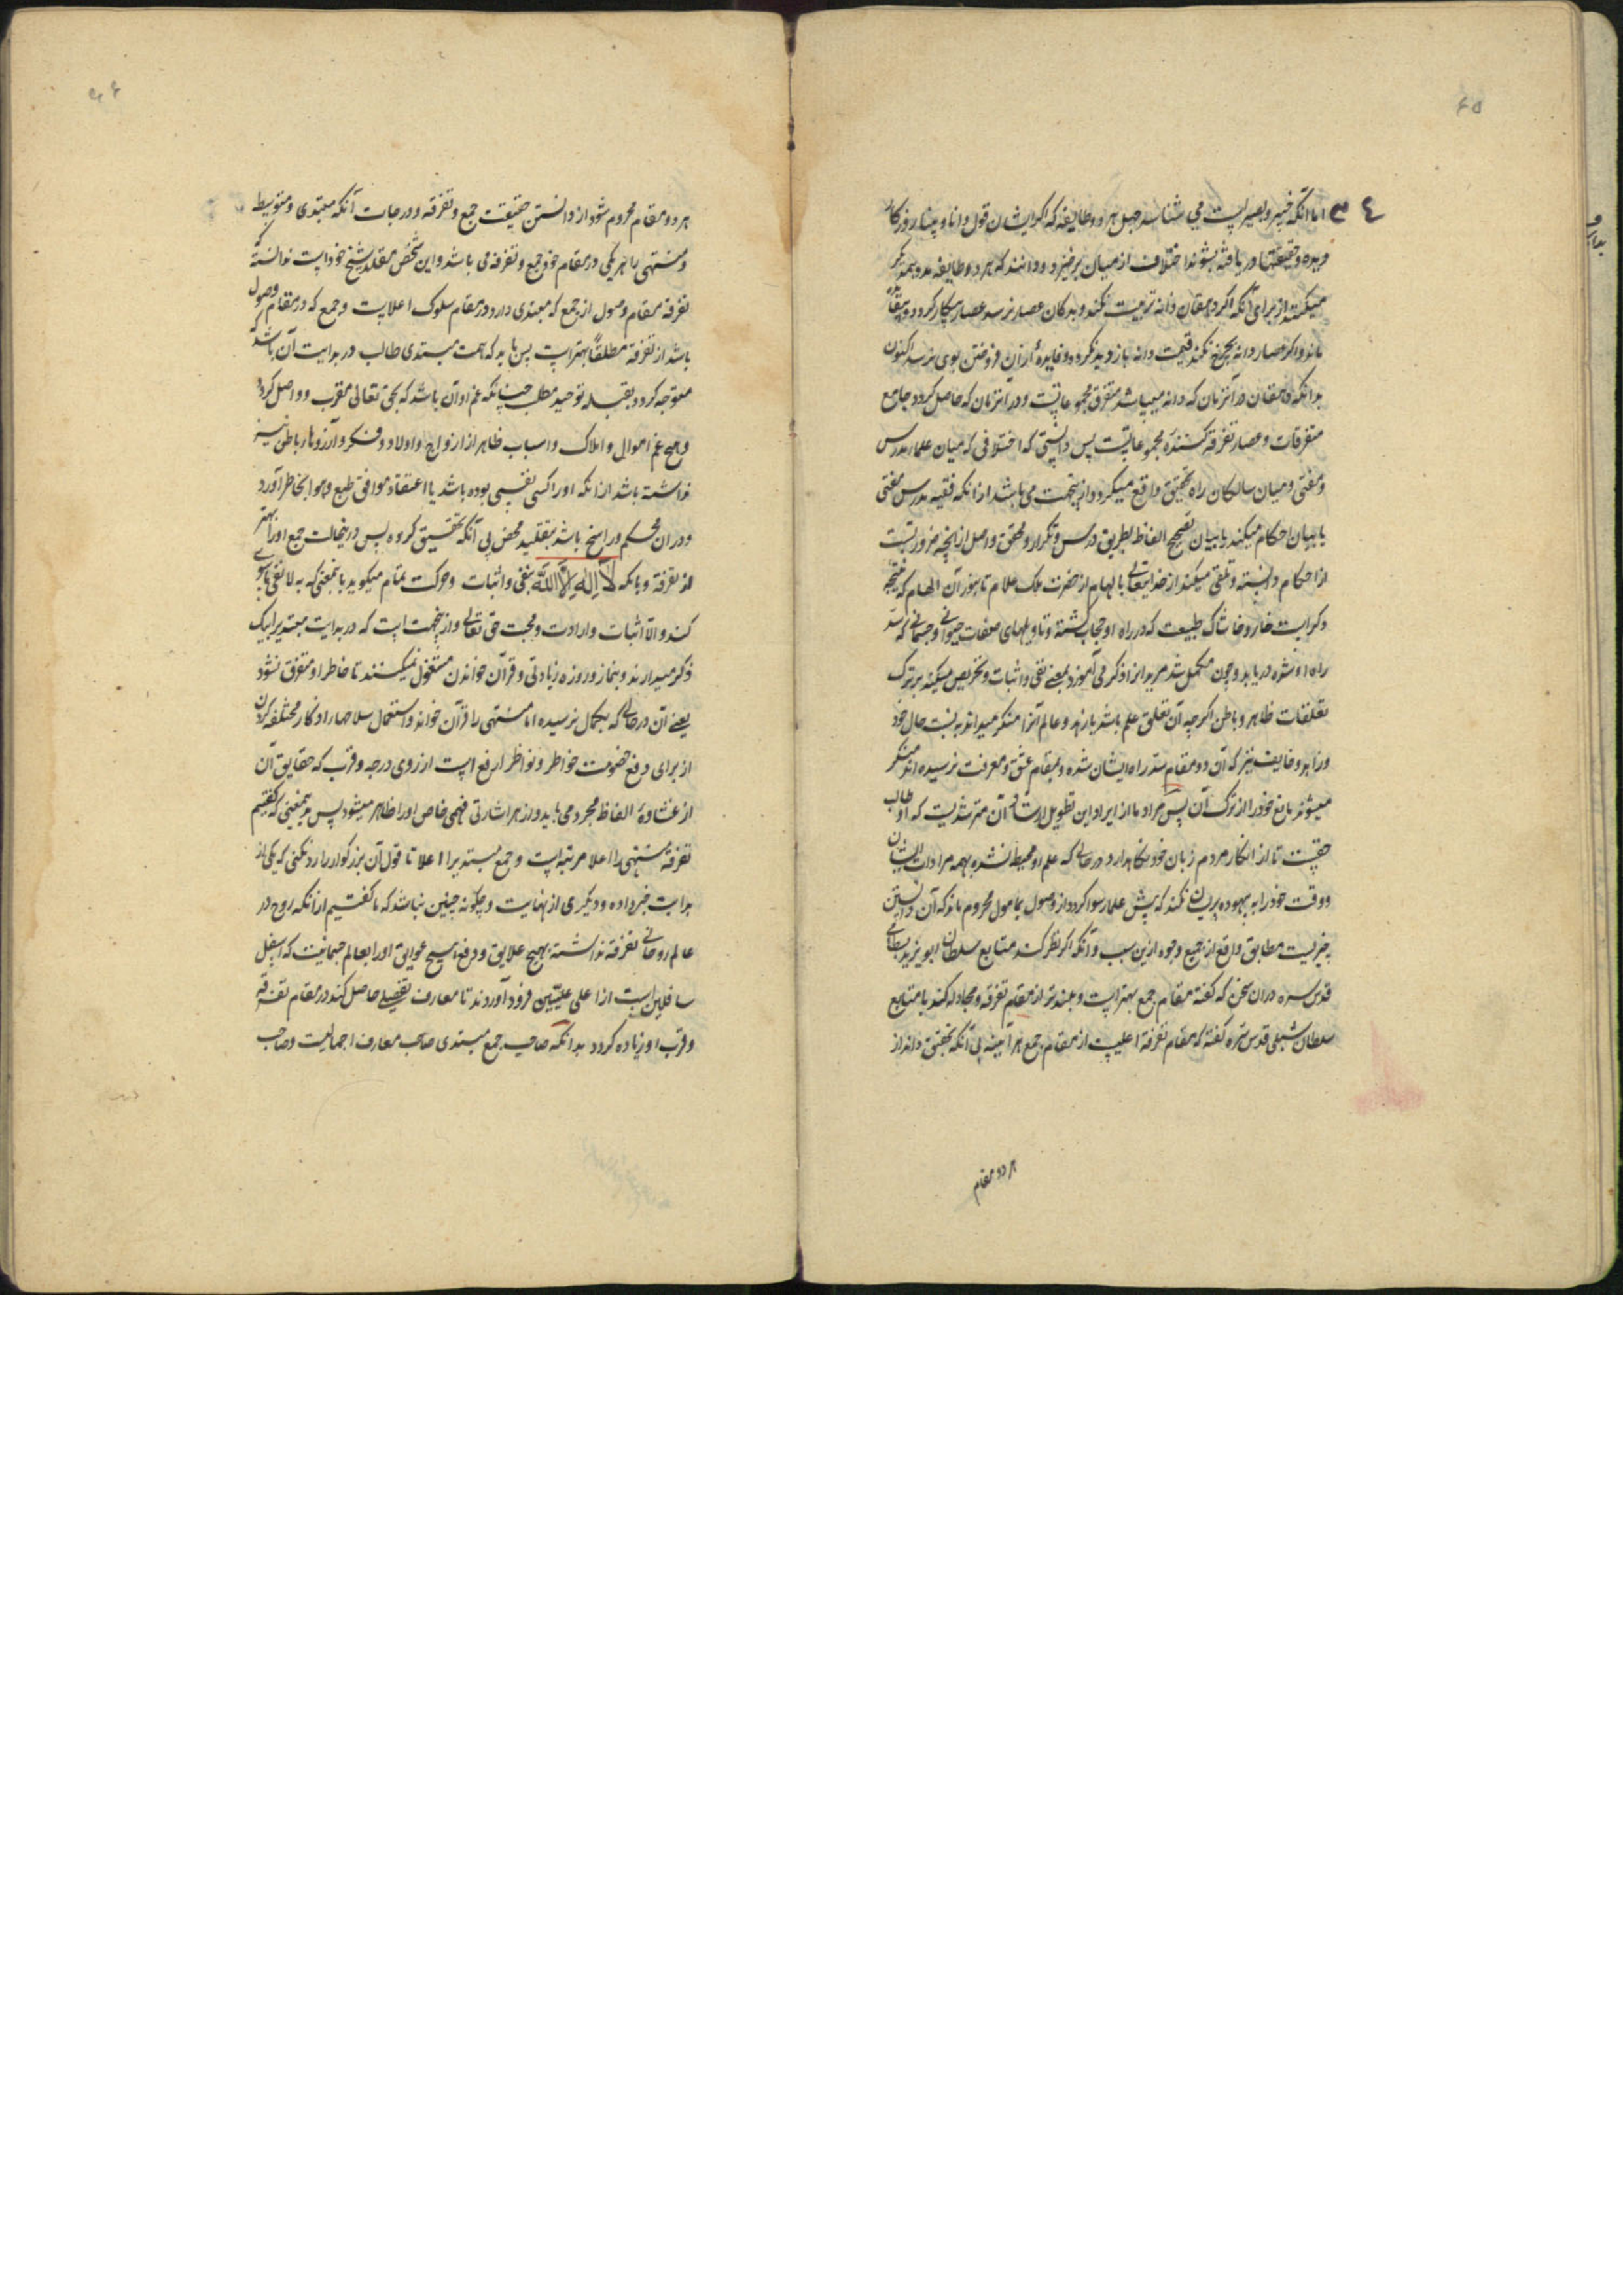 ٣٤
اما آنکه خبیر و بصیر است می شناسد جهل هر دو طایفه که اگر ایشان قول دانا و بینا روزکار
دیده و حقیقتها دریافته بشنوند اختلاف از میان برخیزد و دانند که هر دو طایفه مدد همدیگر
میکنند از برای آنکه اگر دهقان دانه تربیت نکند و بدکان عصار نرسد عصار بیکار گردد و بیفایده
ماند و اگر عصار دانه بچرخ نکند قیمت دانه بازدید نکرده و فایدهٔ از آن فروختن بوی نرسد اکنون
بدانکه دهقان در آنزمان که دانه میپاشد متفرق مجموعاتست و در آنزمان که حاصل گردد جامع
متفرقات و عصار تفرقه کنندهٔ مجموعاتست پس دانستی که اختلافی که میان علماء مدرس
و مفتی و میان سالکان راه تحقیق واقع میگردد از ینجهت می باشد از آنکه فقیه مدرس مفتی
یا بیان احکام میکند یا بیان تصحیح الفاظ بطریق درس و تکرار و محقق واصل از آنچه ضرورتست
از احکام دانسته و تلقی میکند از خدایتعالی بالهام از حضرت ملک علام تا بنور آن الهام که نتیجه
ذکر است خار و خاشاک طبیعت که در راه او حجاب گشته و تاویلهای صفات حیوانی و جسمانی که سد
راه او شده دریابد و چون مکمل شد مریدانرا ذکر می آموزد بمعنی نفی و اثبات و تحریص میکند بر ترک
تعلقات ظاهر و باطن اگرچه آن تعلق علم باشد یا زهد و عالم آنرا منکر میداند بنسبت حال خود
و زاهد و خایف نیز که آن دو مقام سد راه ایشان شده و بمقام عشق و معرفت نرسیده اند منکر
میشوند مانع خود را از ترک آن پس مراد ما از ایراد این تطویل ارشاد آن مسترشدیست که او طالب
حقیست تا از انکار مردم زبان خود نگاهدارد در حالی که علم او محیط نشده بهمه مرادات ایشان
و وقت خود را به بیهوده پریشان نکند که پیش علما رسوا گردد از وصول بمامول محروم ماند که آن دانستن
چیزیست مطابق واقع از جمیع وجوه ازین سبب و آنکه اگر نظر کند متابع سلطان ابو یزید بسطامی
قدس سره در آن سخن که گفته مقام جمع بهتر است و بلندتر از مقام تفرقه و مجادله کند با متابع
سلطان شبلی قدس سره گفته که مقام تفرقه اعلیست از مقام جمع هر آینه بی آنکه تحقیق داند از
هر دو مقام
هر دو مقام محروم شود از دانستن حقیقت جمع و تفرقه و درجات آنکه مبتدی و متوسط
و منتهی را هر یکی در مقام خود جمع و تفرقه می باشد و این شخص مقلد شیخ خود است ندانسته که
تفرقه مقام وصول از جمع که مبتدی دارد در مقام سلوک اعلاست و جمع که در مقام وصول
باشد از تفرقه مطلقاً بهتر است پس باید که همت مبتدی طالب در بدایت آن باشد که
متوجه گردد بقبله توحید مطلب چنانکه غم او آن باشد که بحق تعالی مقرب و واصل گردد
و هیچ غم اموال و املاک و اسباب ظاهر از ازواج و اولاد و فکر و آرزوها باطن نیز
نداشته باشد از آنکه او را کسی نفسی بوده باشد یا اعتقاد موافق طبع و هوا بخاطر آورد
و در آن محکم و راسخ باشد بتقلید محض بی آنکه تحقیق کرده پس درینحالت جمع او را بهتر
از تفرقه و بآنکه لا اله الا الله بنفی و اثبات و حرکت تمام میگوید بآنمعنی که به لا نفی ما سوی
کند و الا اثبات و ارادت و محبت حق تعالی و از ینجهت است که در بدایت مبتدیرا بیک
ذکر میدارند و بنماز و روزه زیادتی و قرآن خواندن مشغول نمیکنند تا خاطر او متفرق نشود
یعنی آن در حالی که بکمال نرسیده اما منتهی را قرآن خواند و استعمال سلاحها و اذکار مختلفه کردن
از برای دفع خصومت خواطر و نواظر ارفع است از روی درجه و قرب که حقایق آن
از غشاوهٔ الفاظ مجرد می یابد و از هر اشارتی فهمی خاص او را ظاهر میشود پس بآنمعنی که گفتیم
تفرقه منتهی را اعلا مرتبه است و جمع مبتدیرا اعلا تا قول آن بزرگوار را رد نکنی که یکی از
بدایت خبر داده و دیگری از نهایت و چگونه چنین نباشد که ما گفتیم از آنکه روح در
عالم روحانی تفرقه نداشته بهیچ علایق و دفع هیچ عوایق او را بعالم جسمانیت که اسفل
سافلین است از اعلی علیین فرود آوردند تا معارف تفصیلی حاصل کند در مقام تفرقه
و قرب او زیاده گردد بدانکه صاحب جمع مبتدی صاحب معارف اجمالیست و صاحب